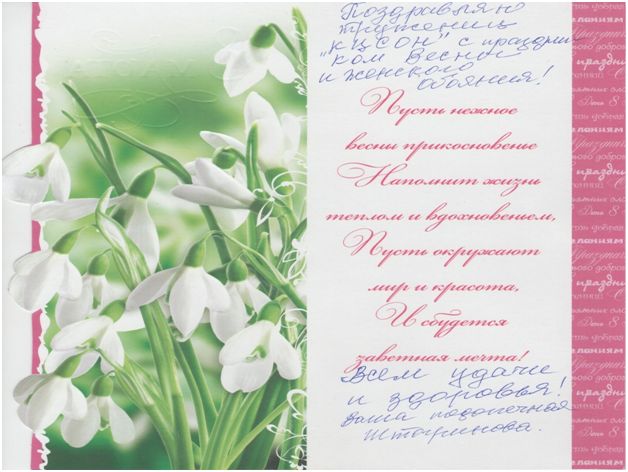 Поздравляю
тружениц
"КЦСОН" с праздни-
ком Весны
и женского
обояния!
Пусть нежное
весны прикосновенье
Наполнит жизнь
теплом и вдохновением,
Пусть окружают
мир и красота,
И сбудется
заветная мечта!
Всем удачи
и здоровья!
Ваша подопечная